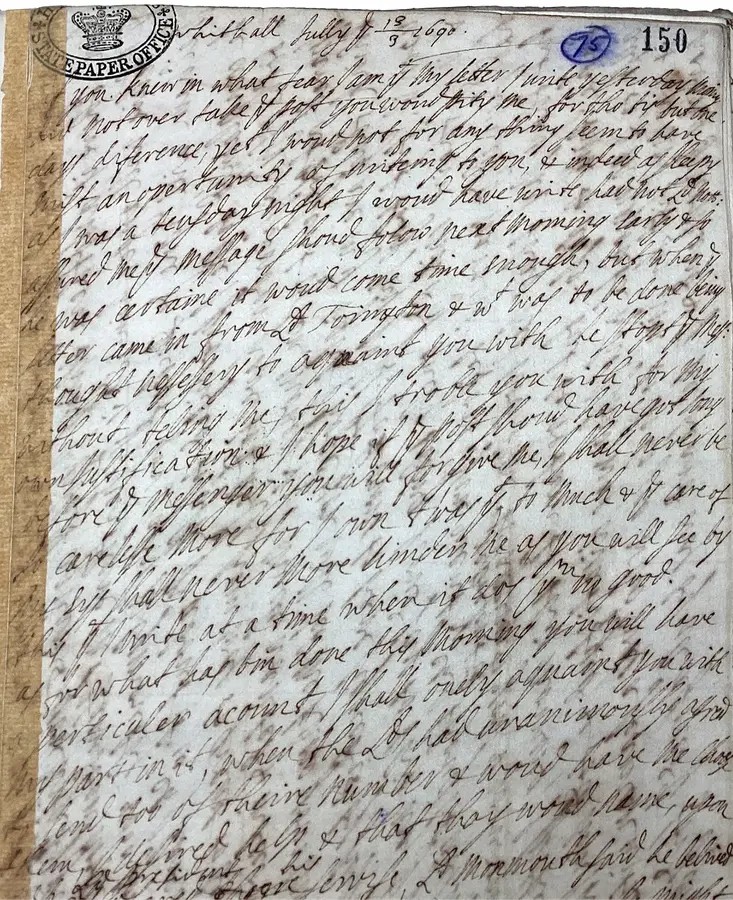 STATE PAPER OFFICE
75
150
whithall July ye 13/3 1690.
you knew in what fear I am yt my letter I write yesterday
not over take ye post you woud pity me, for tho tis but the
days diference, yet I woud not for any thing seem to have
mist an opertunity of writeing to you, & indeed as sleepy
as I was a teusday night I woud have writt had not Ld Nott:
asured me ye message shoud folow next morning early & so
he was certaine it woud come time enough, but when ye
letter came in from Ld Torington & wt was to be done being
thought nessesery to aquaint you with he stopt ye Mess:
without teling me, this I troble you with for my
own justification & I hope if ye post shoud have got long
before ye messenger you will forgive me, I shall never be
careless more for I own twas yt, to much & ye care of
my Eys shall never more hinder me as you will see by
this yt I write at a time when it dos ym no good.
as for what has bin done this morning you will have
perticuler acount I shall onely aquaint you with
my part in it, when the Lds had unanimously agreed
to send too of theire number & woud have me chuse
them, I desired help & that they woud name, upon
Ld president his
Ld Monmouth said he belived
might